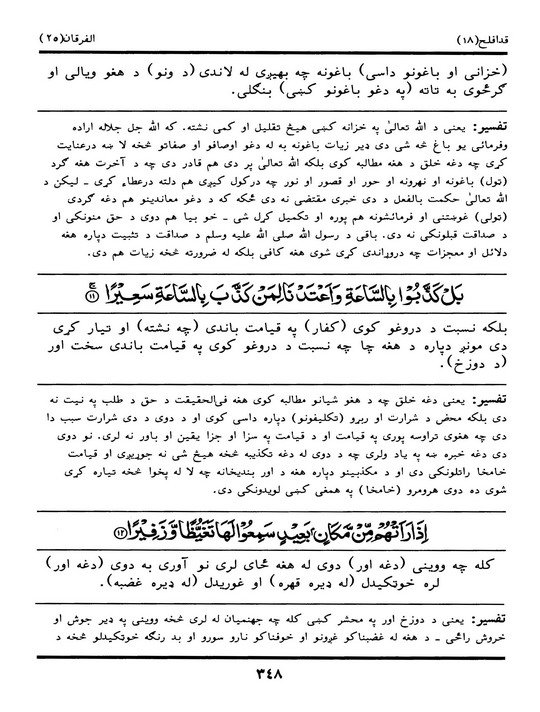 قدافلح(۱۸)
الفرقان(۲۵)
(خزانې او باغونو داسې) باغونه چه بهېږي له لاندې (د ونو) د هغو ويالې او
ګرځوي به تاته (په دغو باغونو کښې) بنګلې.
تفسير: يعنى د الله تعالىٰ په خزانه کښې هيڅ تقليل او کمى نشته. که الله جل جلاله اراده
وفرمائي يو باغ څه شى دى ډير زيات باغونه به له دغو اوصافو او صفاتو څخه لا ښه درعنايت
کړي چه دغه خلق د هغه مطالبه کوي بلکه الله تعالىٰ پر دې هم قادر دى چه د آخرت هغه ګرد
(ټول) باغونه او نهرونه او حور او قصور او نور چه درکول کېږي هم دلته درعطاء کړي ـ ليکن د
الله تعالىٰ حکمت بالفعل د دې خبرې مقتضى نه دى ځکه که د دغو معاندينو هم دغه ګردې
(ټولې) غوښتنې او فرمائشونه هم پوره او تکميل کړل شي ـ خو بيا هم دوى د حق منونکي او
د صداقت قبلونکي نه دي. باقى د رسول الله صلى الله عليه وسلم د صداقت د تثبيت دپاره هغه
دلائل او معجزات چه دروړاندې کړي شوي هغه کافى بلکه له ضرورته څخه زيات هم دي.
بَلْ كَذَّبُوْا بِالسَّاعَةِ وَاَعْتَدْنَا لِمَنْ كَذَّبَ بِالسَّاعَةِ سَعِيْرًا ۚ ⑪
بلکه نسبت د دروغو کوي (کفار) په قيامت باندې (چه نشته) او تيار کړى
دى مونږ دپاره د هغه چا چه نسبت د دروغو کوي په قيامت باندې سخت اور
(د دوزخ).
تفسير: يعنى دغه خلق چه د هغو شيانو مطالبه کوي هغه فى‌الحقيقت د حق د طلب په نيت نه
دي بلکه محض د شرارت او ربړو (تکليفونو) دپاره داسې کوي او د دوى د دې شرارت سبب دا
دى چه هغوى تراوسه پورې په قيامت او د قيامت په سزا او جزا يقين او باور نه لري. نو دوى
دې دغه خبره ښه په ياد ولري چه د دوى له دغه تکذيبه څخه هيڅ شى نه جوړيږي او قيامت
خامخا راتلونکى دى او د مکذبينو دپاره هغه د اور بنديخانه چه لا له پخوا څخه تياره کړى
شوى ده دوى هرومرو (خامخا) په همغې کښې لويدونکي دي.
اِذَا رَاَتْهُمْ مِّنْ مَّكَانٍۭ بَعِيْدٍ سَمِعُوْا لَهَا تَغَيُّظًا وَّزَفِيْرًا ⑫
کله چه وويني (دغه اور) دوى له هغه ځاى لرې نو آوري به دوى (دغه اور)
لره خوټکيدل (له ډيره قهره) او غوړيدل (له ډيره غضبه).
تفسير: يعنى د دوزخ اور په محشر کښې کله چه جهنميان له لرې څخه وويني په ډير جوش او
خروش راځي ـ د هغه له غضبناکو غږونو او خوفناکو نارو سورو او بد رنګه خوټکيدلو څخه د
۳۴۸